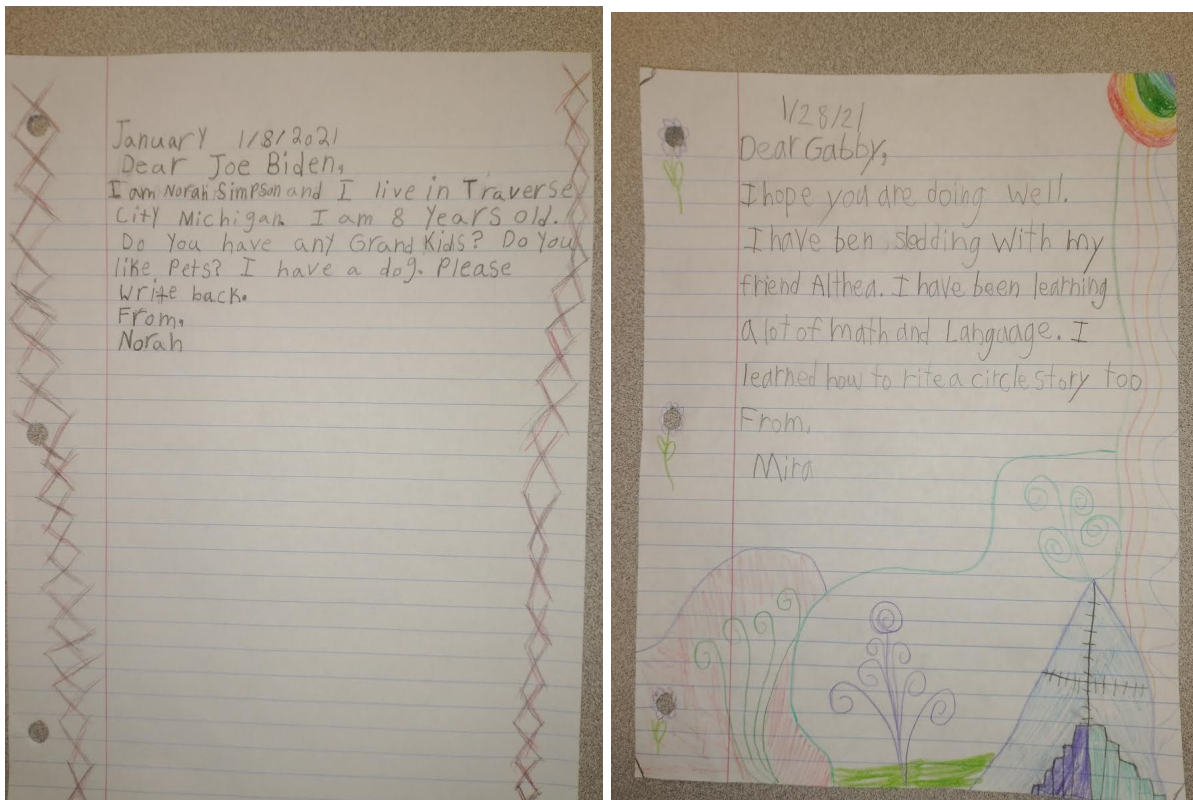 January 1/8/2021
Dear Joe Biden,
I am Norah Simpson and I live in Traverse
City Michigan. I am 8 Years old.
Do You have any Grand Kids? Do You
like Pets? I have a dog. Please
Write back.
From,
Norah
1/28/21
Dear Gabby,
I hope you are doing well.
I have ben sledding with my
friend Althea. I have been learning
a lot of math and Language. I
learned how to rite a circle story too
From,
Mira